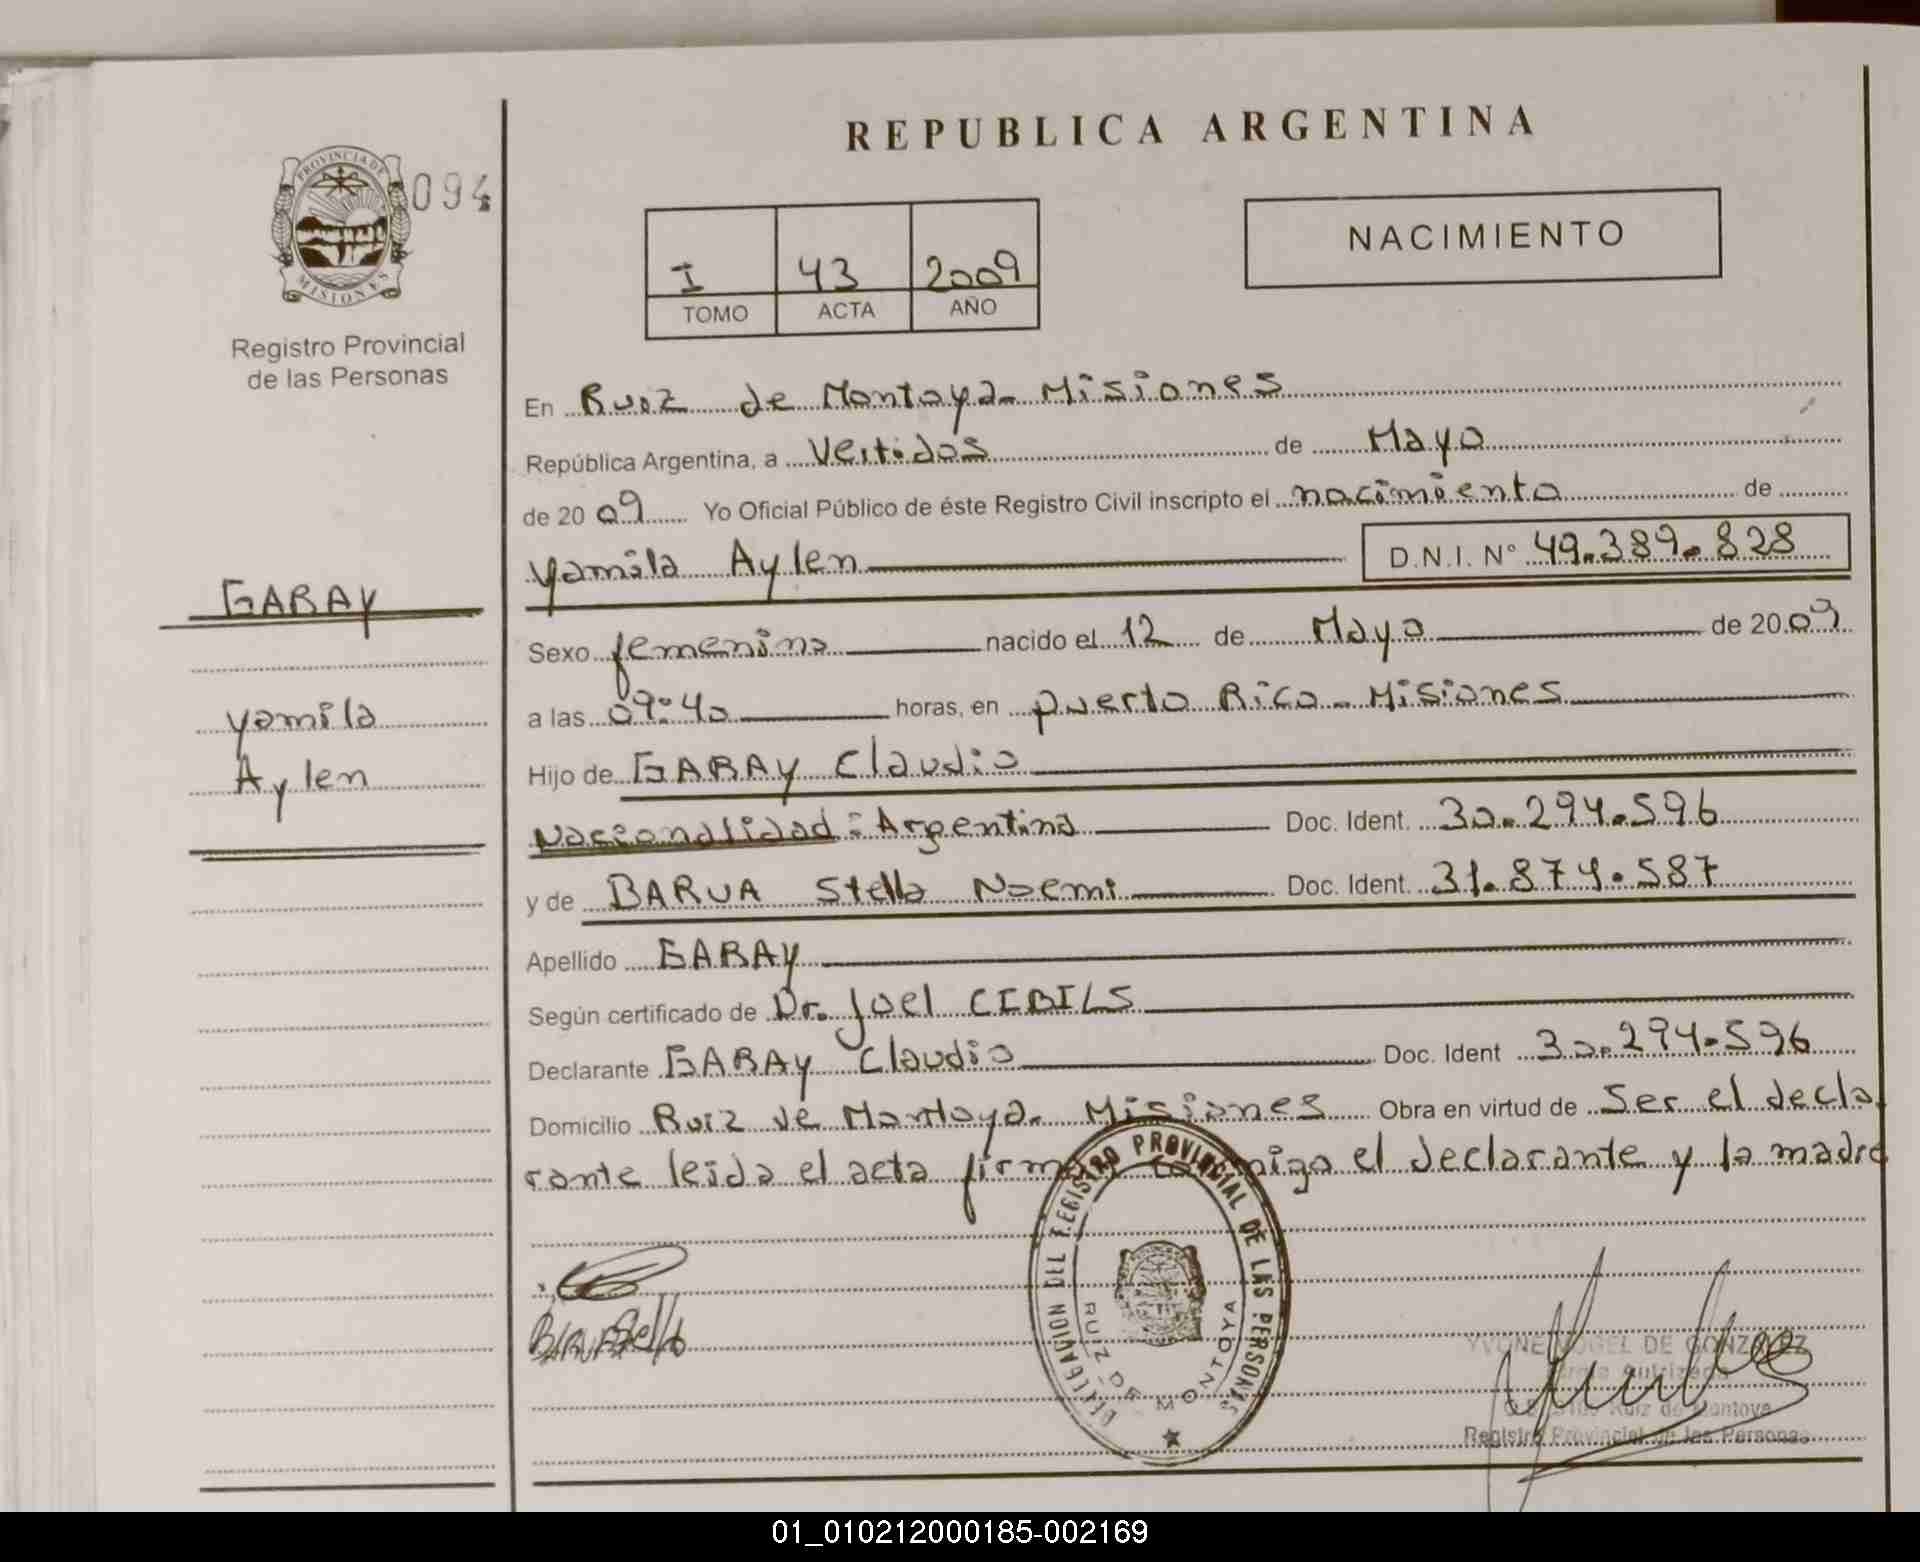 REPUBLICA ARGENTINA
PROVINCIA DE
MISIONES
094
Registro Provincial
de las Personas
I 43 2009
TOMO ACTA AÑO
NACIMIENTO
En Ruiz de Montoya- Misiones
República Argentina, a Veitidos de Mayo
de 2009 Yo Oficial Público de éste Registro Civil inscripto el nacimiento de
Yamila Aylen D.N.I. Nº 49.389.828
GARAY
Yamila
Aylen
Sexo femenino nacido el 12 de Mayo de 2009
a las 09:40 horas, en Puerto Rico- Misiones
Hijo de GARAY Claudio
Nacionalidad: Argentina Doc. Ident. 30.294.596
y de BARUA Stella Noemi Doc. Ident. 31.874.587
Apellido GARAY
Según certificado de Dr. Joel CIBILS
Declarante GARAY Claudio Doc. Ident 30.294.596
Domicilio Ruiz de Montoya- Misiones Obra en virtud de Ser el decla
rante leida el acta firma el declarante y la madre
DELEGACION DEL REGISTRO PROVINCIAL DE LAS PERSONAS
RUIZ DE MONTOYA
YVONE VOGEL DE GONZALEZ
Ruiz de Montoya
Registro Provincial de las Personas
01_010212000185-002169